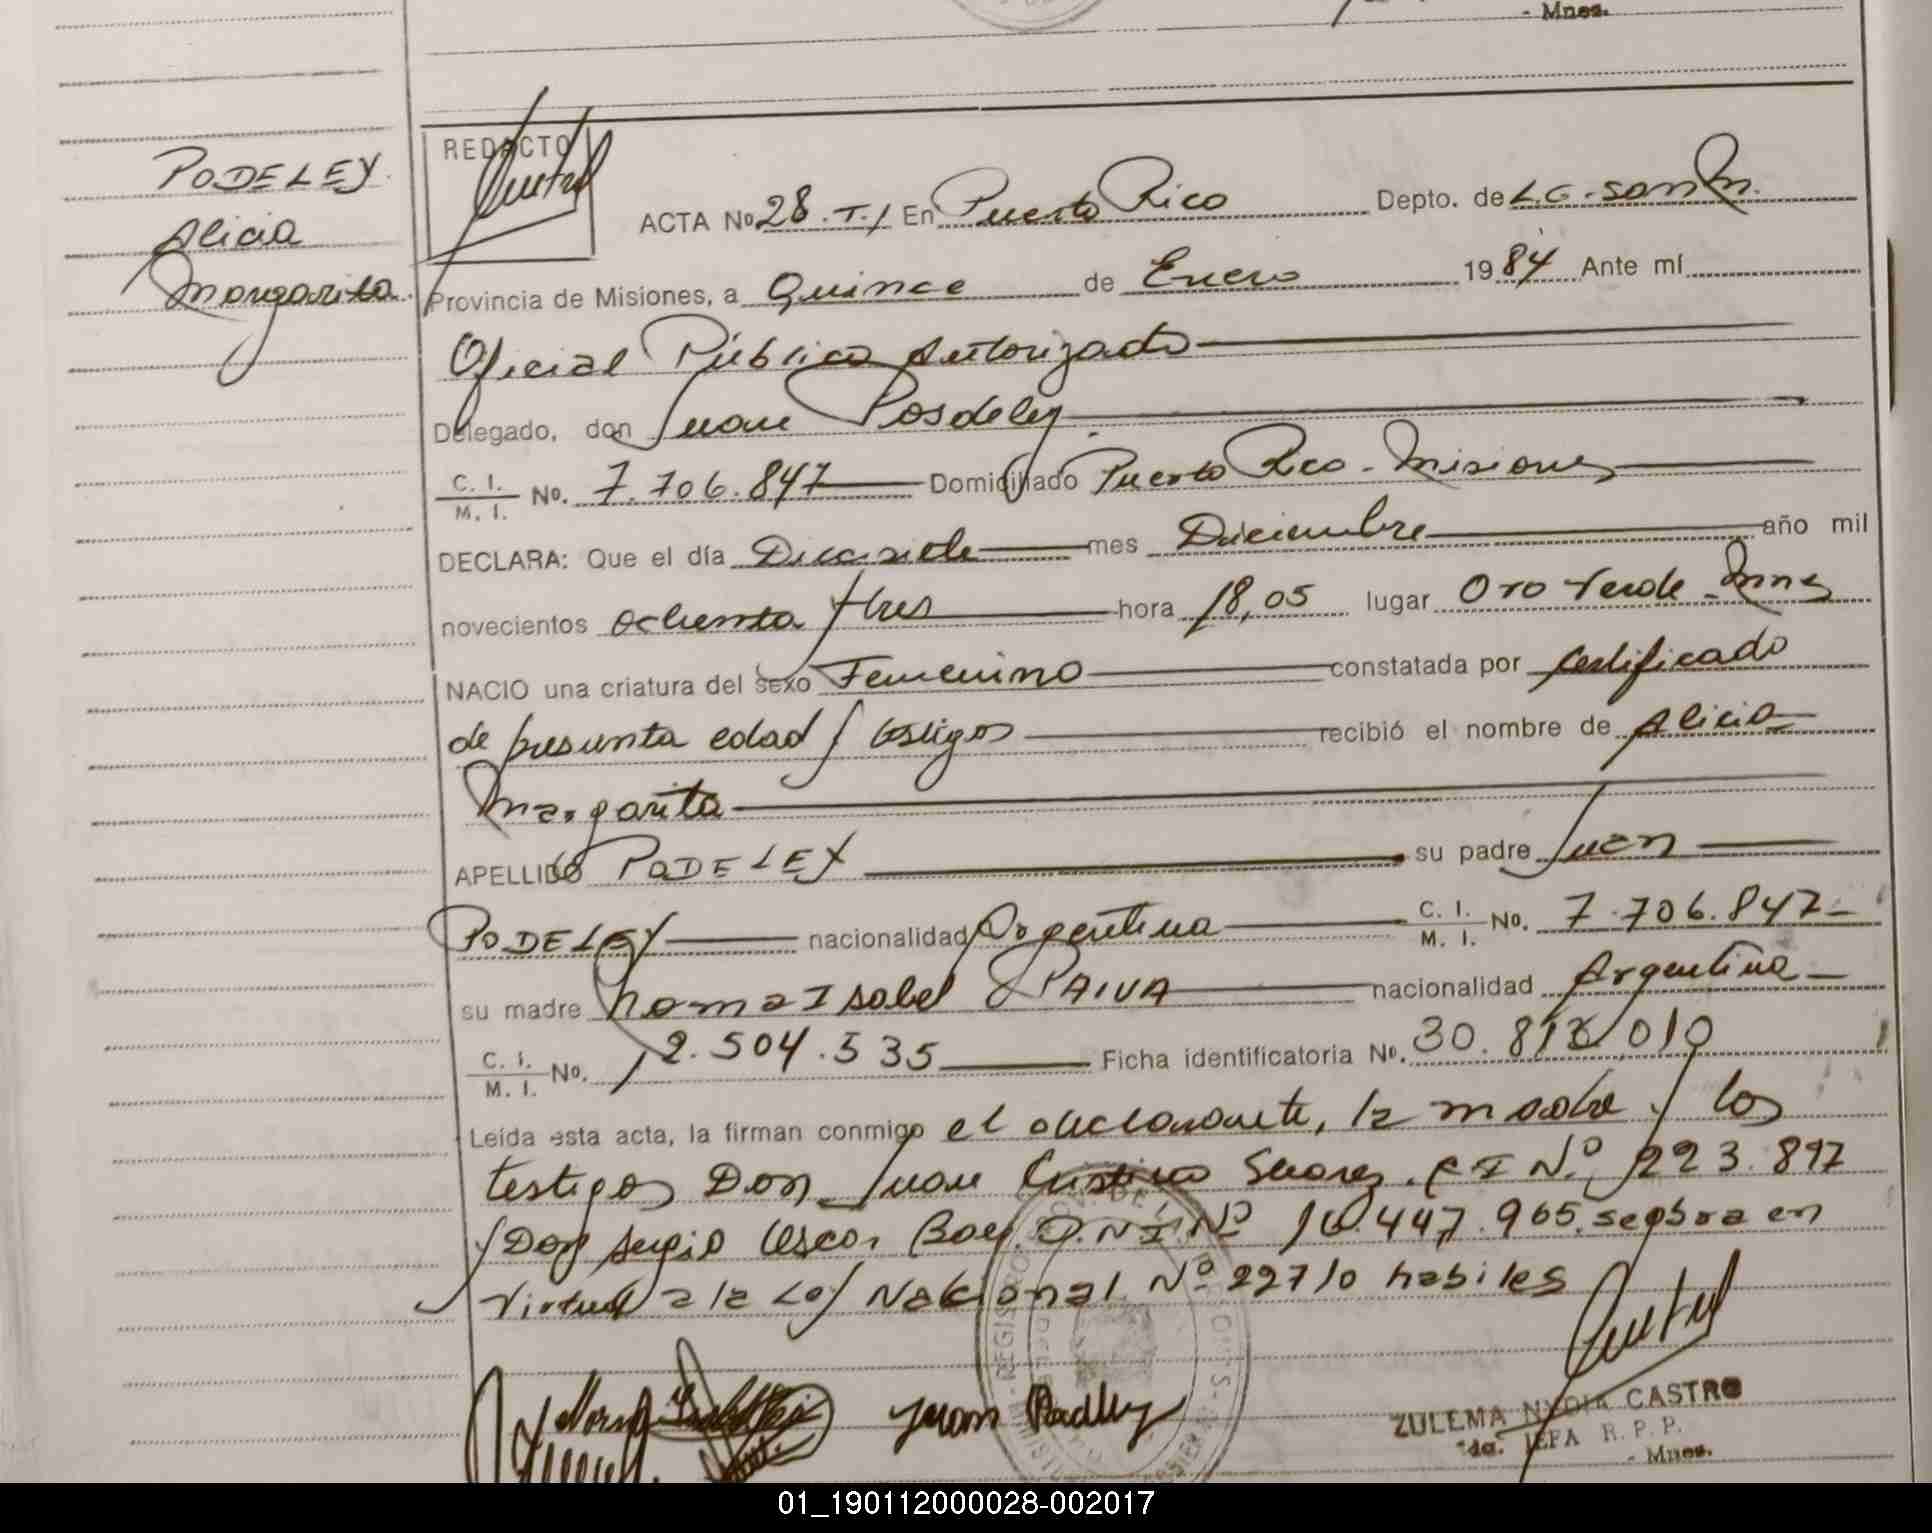 - Mnes.
PODELEY
Alicia
Margarita
REDACTO
ACTA No 28. T. I En Puerto Rico Depto. de L.G. San M.
Provincia de Misiones, a Quince de Enero 1984 Ante mí
Oficial Público Autorizado
Delegado, don Juan Posdeley
C. I. / M. I. No. 7.706.847 Domiciliado Puerto Rico - Misiones
DECLARA: Que el día Diecisiete mes Diciembre año mil
novecientos ochenta y tres hora 18,05 lugar Oro Verde - Mnes
NACIO una criatura del sexo Femenino constatada por Certificado
de presunta edad y testigos recibió el nombre de Alicia
Margarita
APELLIDO PODELEY su padre Juan
PODELEY nacionalidad Argentina C. I. / M. I. No. 7.706.847
su madre Norma Isabel PAIVA nacionalidad Argentina
C. I. / M. I. No. 12.504.535 Ficha identificatoria No. 30.813.010
Leída esta acta, la firman conmigo el declarante, la madre y los
testigos Don Juan Cristino Suarez. C I N.º 223.897
y Don Sergio Oscar Boey. D.N.I. Nº 16.447.965. se obra en
Virtud a la Ley Nacional Nº 22710 habiles
Juan Podley
ZULEMA NYDIA CASTRO
JEFA R. P. P.
- Mnes.
01_190112000028-002017